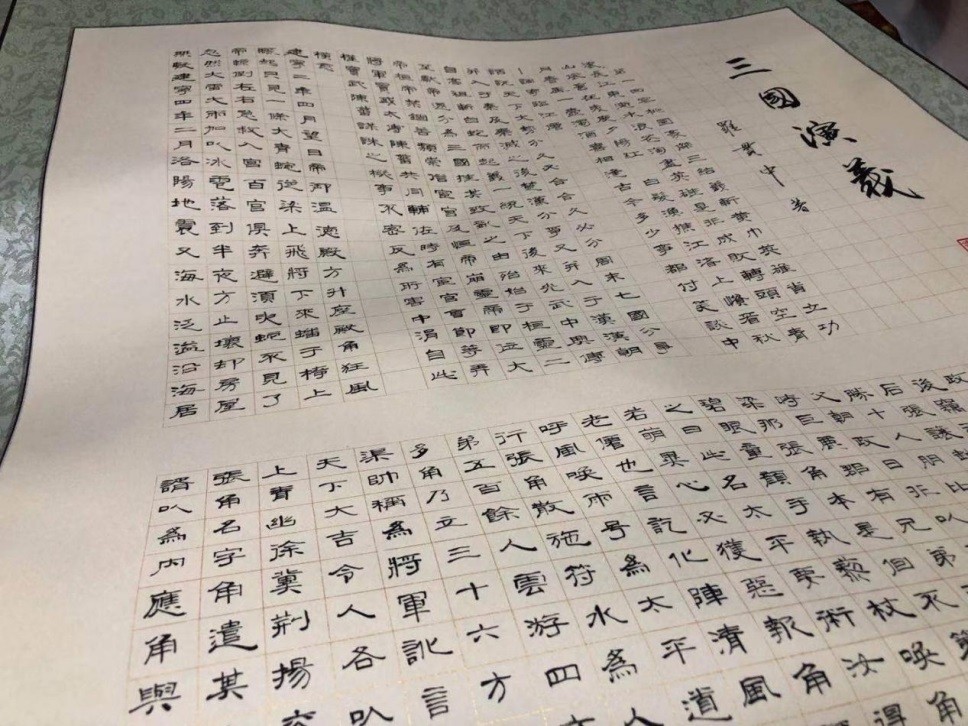 三國演義
羅貫中 著
第一回宴桃園豪傑三結義斬黃巾英雄首立功
長江東逝水浪花淘盡英雄是非成敗轉頭空青
山依舊在幾度夕陽紅白髮漁樵江渚上慣看秋
月春風一壺濁酒喜相逢古今多少事都付笑談中
話說天下大勢分久必合合久必分周末七國分爭
并入于秦及秦滅之後楚漢分爭又并入于漢漢朝
自高祖斬白蛇而起義一統天下後來光武中興傳
至獻帝遂分為三國推其致亂之由殆始于桓靈二
帝桓帝禁錮善類崇信宦官及桓帝崩靈帝即位大
將軍竇武太傅陳蕃共同輔佐時有宦官曹節等弄
權竇武陳蕃謀誅之機事不密反為所害中涓自此
橫
建寧二年四月望日帝御溫德殿方升座殿角狂風
驟起只見一條大青蛇從梁上飛將下來蟠于椅上
帝驚倒左右急救入宮百官俱奔避須臾蛇不見了
忽然大雷大雨加以冰雹落到半夜方止壞却房屋
無數建寧四年二月洛陽地震又海水泛溢沿海居
梁那張角本是個不第
碧眼童顏手執藜杖喚角
之曰此名太平要術汝
若萌異心必獲惡報
老也言訖化陣清風
呼風喚雨號為太平道
行張角散施符水為人
弟五百餘人雲游四方
多角乃立三十六方
渠帥稱為將軍訛言
天下大吉令人各以
上青幽徐冀荊揚
張角名字角遣其
諝以為內應角與